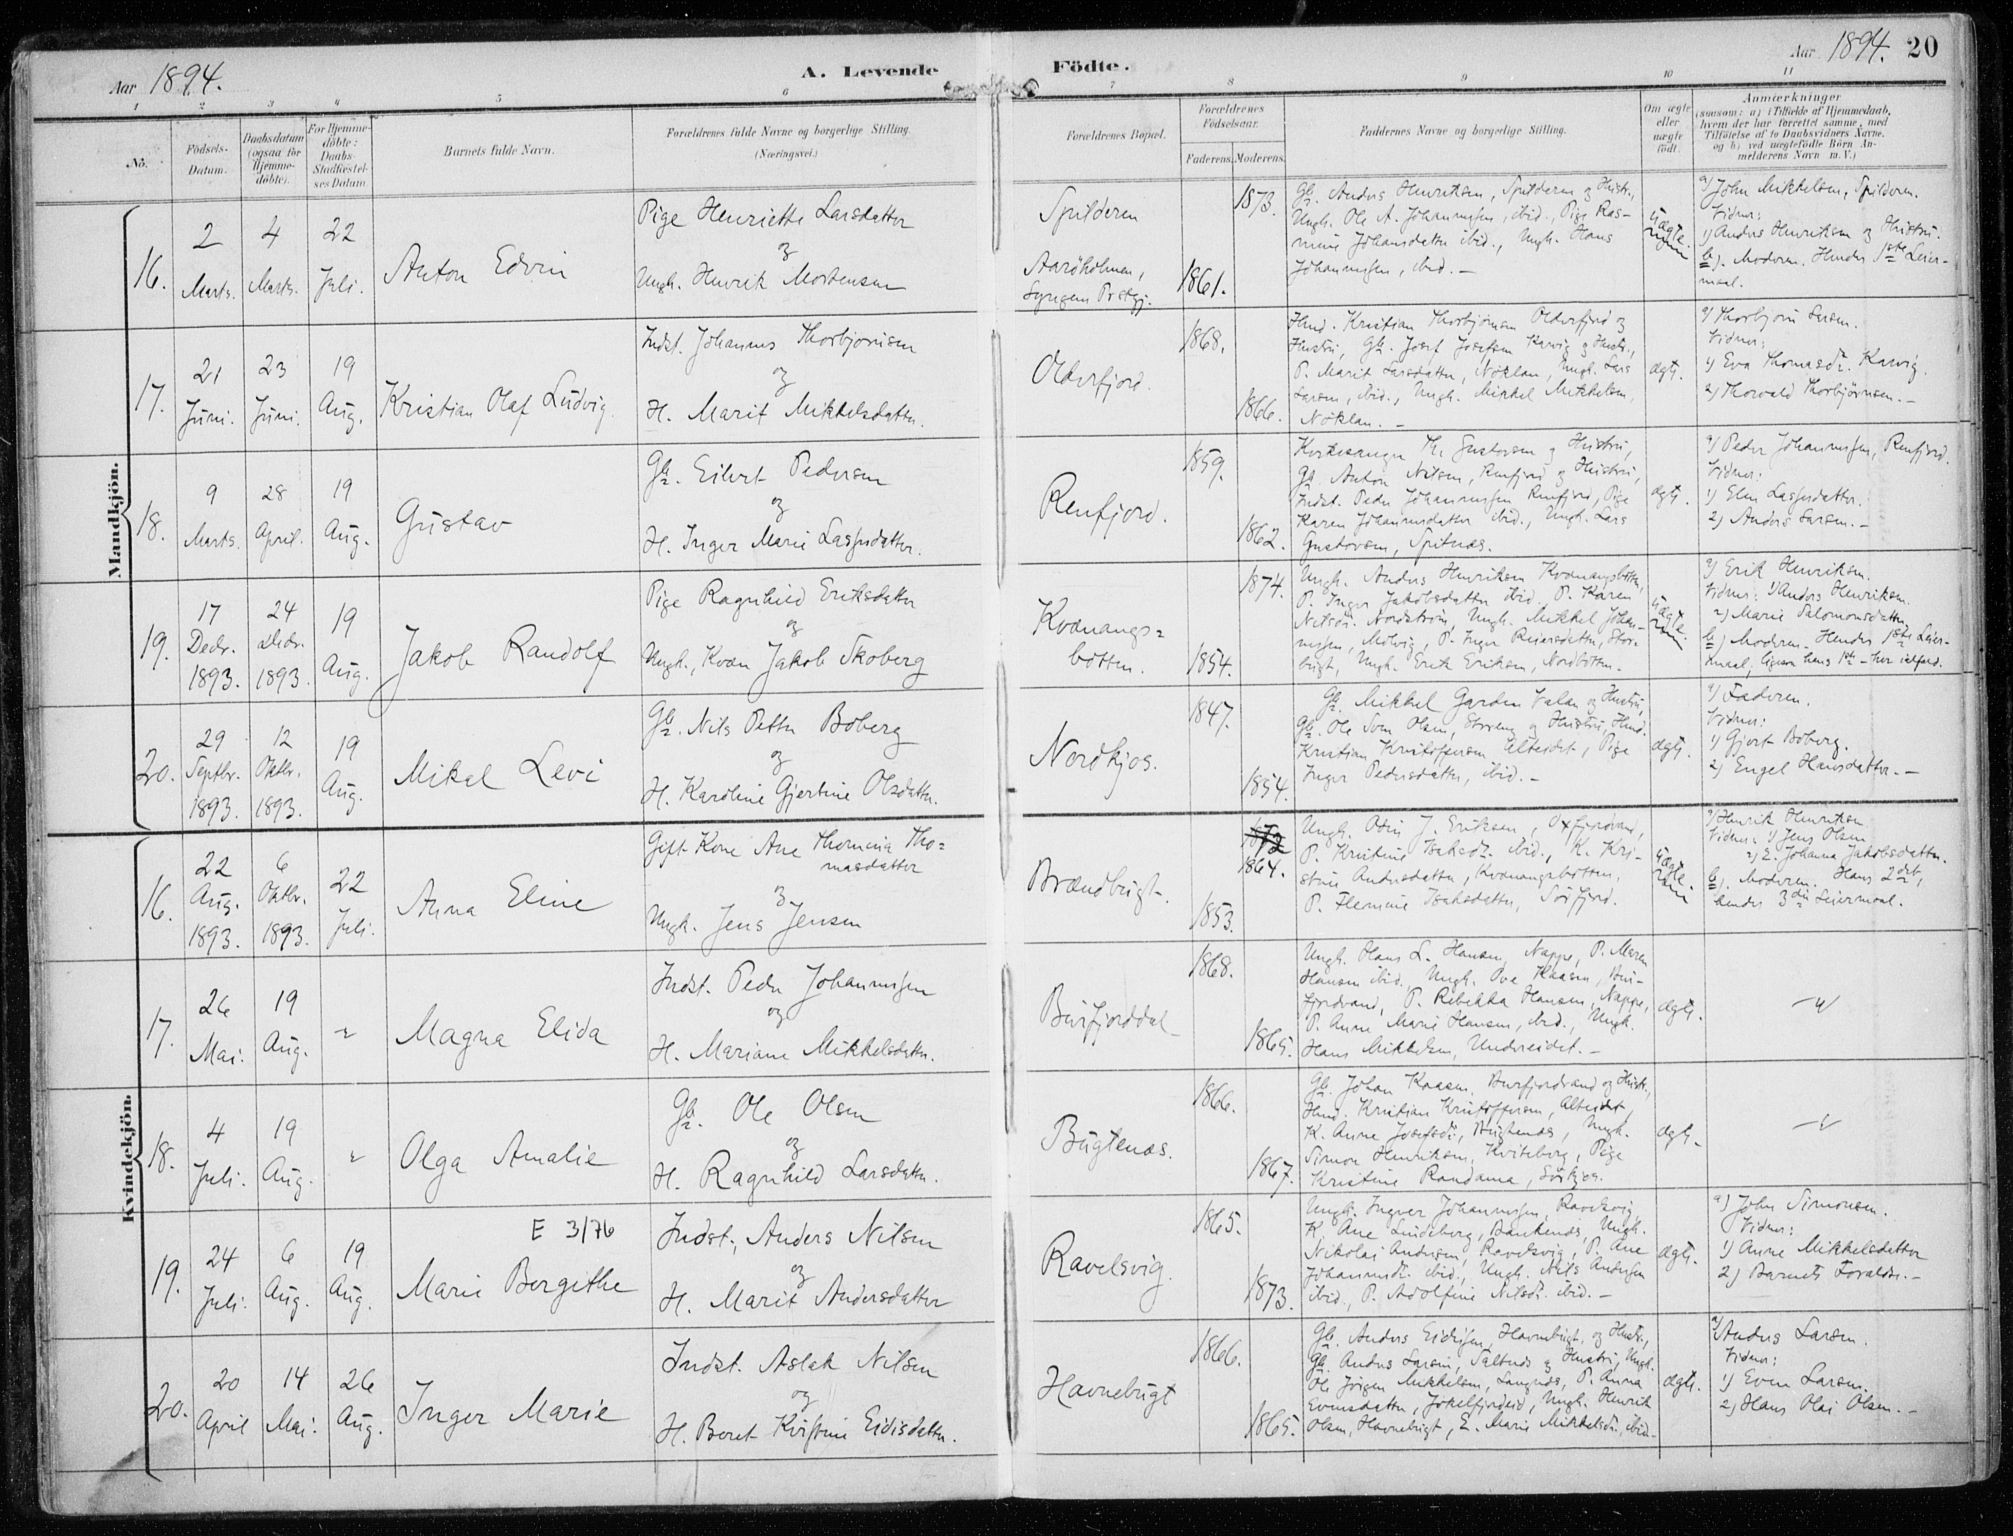 Aar 1894.
A. Levende
Födte.
Aar 1894. 20
1 2 3 4 5 6 7 8 9 10 11
No.
Födsels-
Datum.
Daabsdatum
(ogsaa for
Hjemme-
döbte).
For Hjemme-
döbte:
Daabs-
Stadfæstel-
ses Datum
Barnets fulde Navn.
Forældrenes fulde Navne og borgerlige Stilling.
(Næringsvei.)
Forældrenes Bopæl.
Forældrenes
Födselsaar.
Faderens. Moderens.
Faddernes Navne og borgerlige Stilling.
Om ægte
eller
uægte
födt.
Anmærkninger
(saasom: a) i Tilfælde af Hjemmedaab,
hvem der har forrettet samme, med
Tilföielse af to Daabsvidners Navne,
og b) ved uægtefödte Börn An-
melderens Navn m. V.)
Mandkjön.
16.
2
Marts.
4
Marts.
22
Juli.
Anton Edvin
Pige Henriette Larsdatter
og
Ungk. Henrik Mortensen
Spilderen
Aaröholmen,
Lyngens Prstgj.
1873.
1861.
Gb. Anders Henriksen, Spilderen og Hustru,
Ungk. Ole A. Johannessen, ibid., Pige Ras-
mine Johansdatter ibid., Ungk. Hans
Johannessen, ibid. -
Uægte.
a) John Mikkelsen, Spilderen.
Vidner:
1) Anders Henriksen og Hustru.
b). Moderen. Hendes 1ste Leier-
maal.
17.
21
Juni.
23
Juni.
19
Aug.
Kristian Olaf Ludvig.
Indst. Johannes Thorbjørnsen
og
H. Marit Mikkelsdatter.
Olderfjord.
1868.
1866.
Husd. Kristian Thorbjørnsen Olderfjord og
Hustru, Gb. Josef Josefsen Karvig og Hustr.,
P. Marit Larsdatter, Nöklan, Ungk. Lars
Larsen, ibid., Ungk. Mikkel Mikkelsen,
Nöklan. -
ægte.
a) Thorbjörn Larsen.
Vidner:
1) Eva Thomasdr. Karvig
2) Thorvald Thorbjörnsen. -
18.
9
Marts.
28
April.
19
Aug.
Gustav
Gb. Eilert Pedersen
og
H. Inger Marie Lassesdatter.
Renfjord.
1859.
1862.
Kirkesanger Th. Gustavsen og Hustru,
Gb. Anton Nilsen, Renfjord og Hustru,
Indst. Peder Johannessen Renfjord, Pige
Karen Johannesdatter ibid., Ungk. Lars
Gustavsen, Spitnæs.
ægte.
a) Peder Johannessen, Renfjord.
Vidner:
1) Elen Lassesdatter.
2) Anders Larsen. -
19.
17
Decbr.
1893.
24
Decbr.
1893.
19
Aug.
Jakob Randolf
Pige Ragnhild Eriksdatter
og
Ungk., Kvæn Jakob Skoberg
Kvænangs-
botten.
1874.
1854.
Ungk. Anders Henriksen Kvænangsbotten,
P. Inger Jakobsdatter ibid., P. Karen
Nilsdr. Nordström, Ungk. Mikkel Johan-
nessen, Molvig, P. Inger Reiersdatter, Stor-
bugt, Ungk. Erik Eriksen, Nordbotten.
Uægte.
a) Erik Henriksen.
Vidner: 1) Anders Henriksen.
2) Marie Salomonsdatter
b) Moderen. Hendes 1ste Leier-
maal, ligesaa hans 1ste - her ialfald.
20.
29
Septbr.
1893.
12
Oktbr.
1893.
19
Aug.
Mikal Levi
Gb. Nils Petter Boberg
og
H. Karoline Gjertine Olsdatter.
Nordkjos.
1847.
1854.
Gb. Mikkel Garden Valan og Hustru,
Gb. Ole Tom Olsen, Storeng og Hustru, Husd.
Kristian Kristoffersen Alteidet, Pige
Inger Pedersdatter, ibid. -
ægte.
a) Faderen.
Vidner:
1) Gjert Boberg.
2) Engel Hansdatter. -
Kvindekjön.
16.
22
Aug.
1893.
6
Oktbr.
1893.
22
Juli.
Anna Eline
Gift Kone Ane Thomina Tho-
masdatter
og
Ungk. Jens Jensen
Brændbugt.
1864.
1853.
Ungk. Odin J. Eriksen,
P. Kristine Isaksdr. ibid., K. Kri-
stine Andersdatter, Kvænangsbotten,
P. Flemine Isaksdatter, Sörfjord.
Uægte.
a) Henrik Henriksen
Vidner: 1) Jens Olsen
2) E. Johanna Jakobsdatter.
b). Moderen. Hans 2det,
hendes 3die Leiermaal.
17.
26
Mai.
19
Aug.
"
Magna Elida
Indst. Peder Johannessen
og
H. Mariane Mikkelsdatter.
Burfjorddal
1868.
1865.
Ungk. Hans L. Hansen, Nappe, P. Maren
Hansen ibid., Ungk. Ove Kaasen, Bur-
fjordvand, P. Rebekka Hansen, Nappe,
P. Anne Marie Hansen, ibid., Ungk.
Hans Mikkelsen, Undereidet. -
ægte.
- " -
18.
4
Juli.
19
Aug.
"
Olga Amalie
Gb. Ole Olsen
og
H. Ragnhild Larsdatter.
Bugtenæs.
1866.
1867.
Gb. Johan Kaasen, Burfjordvand og Hustr.,
Husd. Kristian Kristoffersen, Alteidet,
K. Anne Josefsdr., Bugtenæs, Ungk.
Simon Henriksen, Kviteberg, Pige
Kristine Randama, Sörkjos.
ægte.
- " -
19.
24
Juli.
6
Aug.
19
Aug.
E 3/76
Marie Bergithe
Indst., Anders Nilsen
og
H. Marit Andersdatter
Ravelsvig.
1865.
1873.
Ungk. Ingver Johannessen, Ravelsvig,
K. Ane Lindeberg, Bankenæs, Ungk.
Nikolai Andersen, Ravelsvig, P. Ane
Johannesdr. ibid., Ungk. Nils Andersen
ibid., P. Adolfine Nilsdr. ibid. -
ægte.
a) John Simonsen.
Vidner:
1) Anne Mikkelsdatter
2) Barnets Forældre. -
20.
20
April
14
Mai.
26
Aug.
Inger Marie
Indst. Aslak Nilsen
og
H. Beret Kristine Eidisdatter.
Havnebugt
1866.
1865.
Gb. Anders Eidissen, Havnebugt, og Hustr.,
Gb. Anders Larsen, Saltnæs og Hustru, Ungk.
Ole Jörgen Mikkelsen, P. Anna
Evensdatter, Jökelfjordeid, Ungk. Henrik
Olsen, Havnebugt, E. Marie Mikkelsdr., ibid. -
ægte.
a) Anders Larsen.
Vidner:
1) Even Larsen.
2) Hans Olai Olsen. -